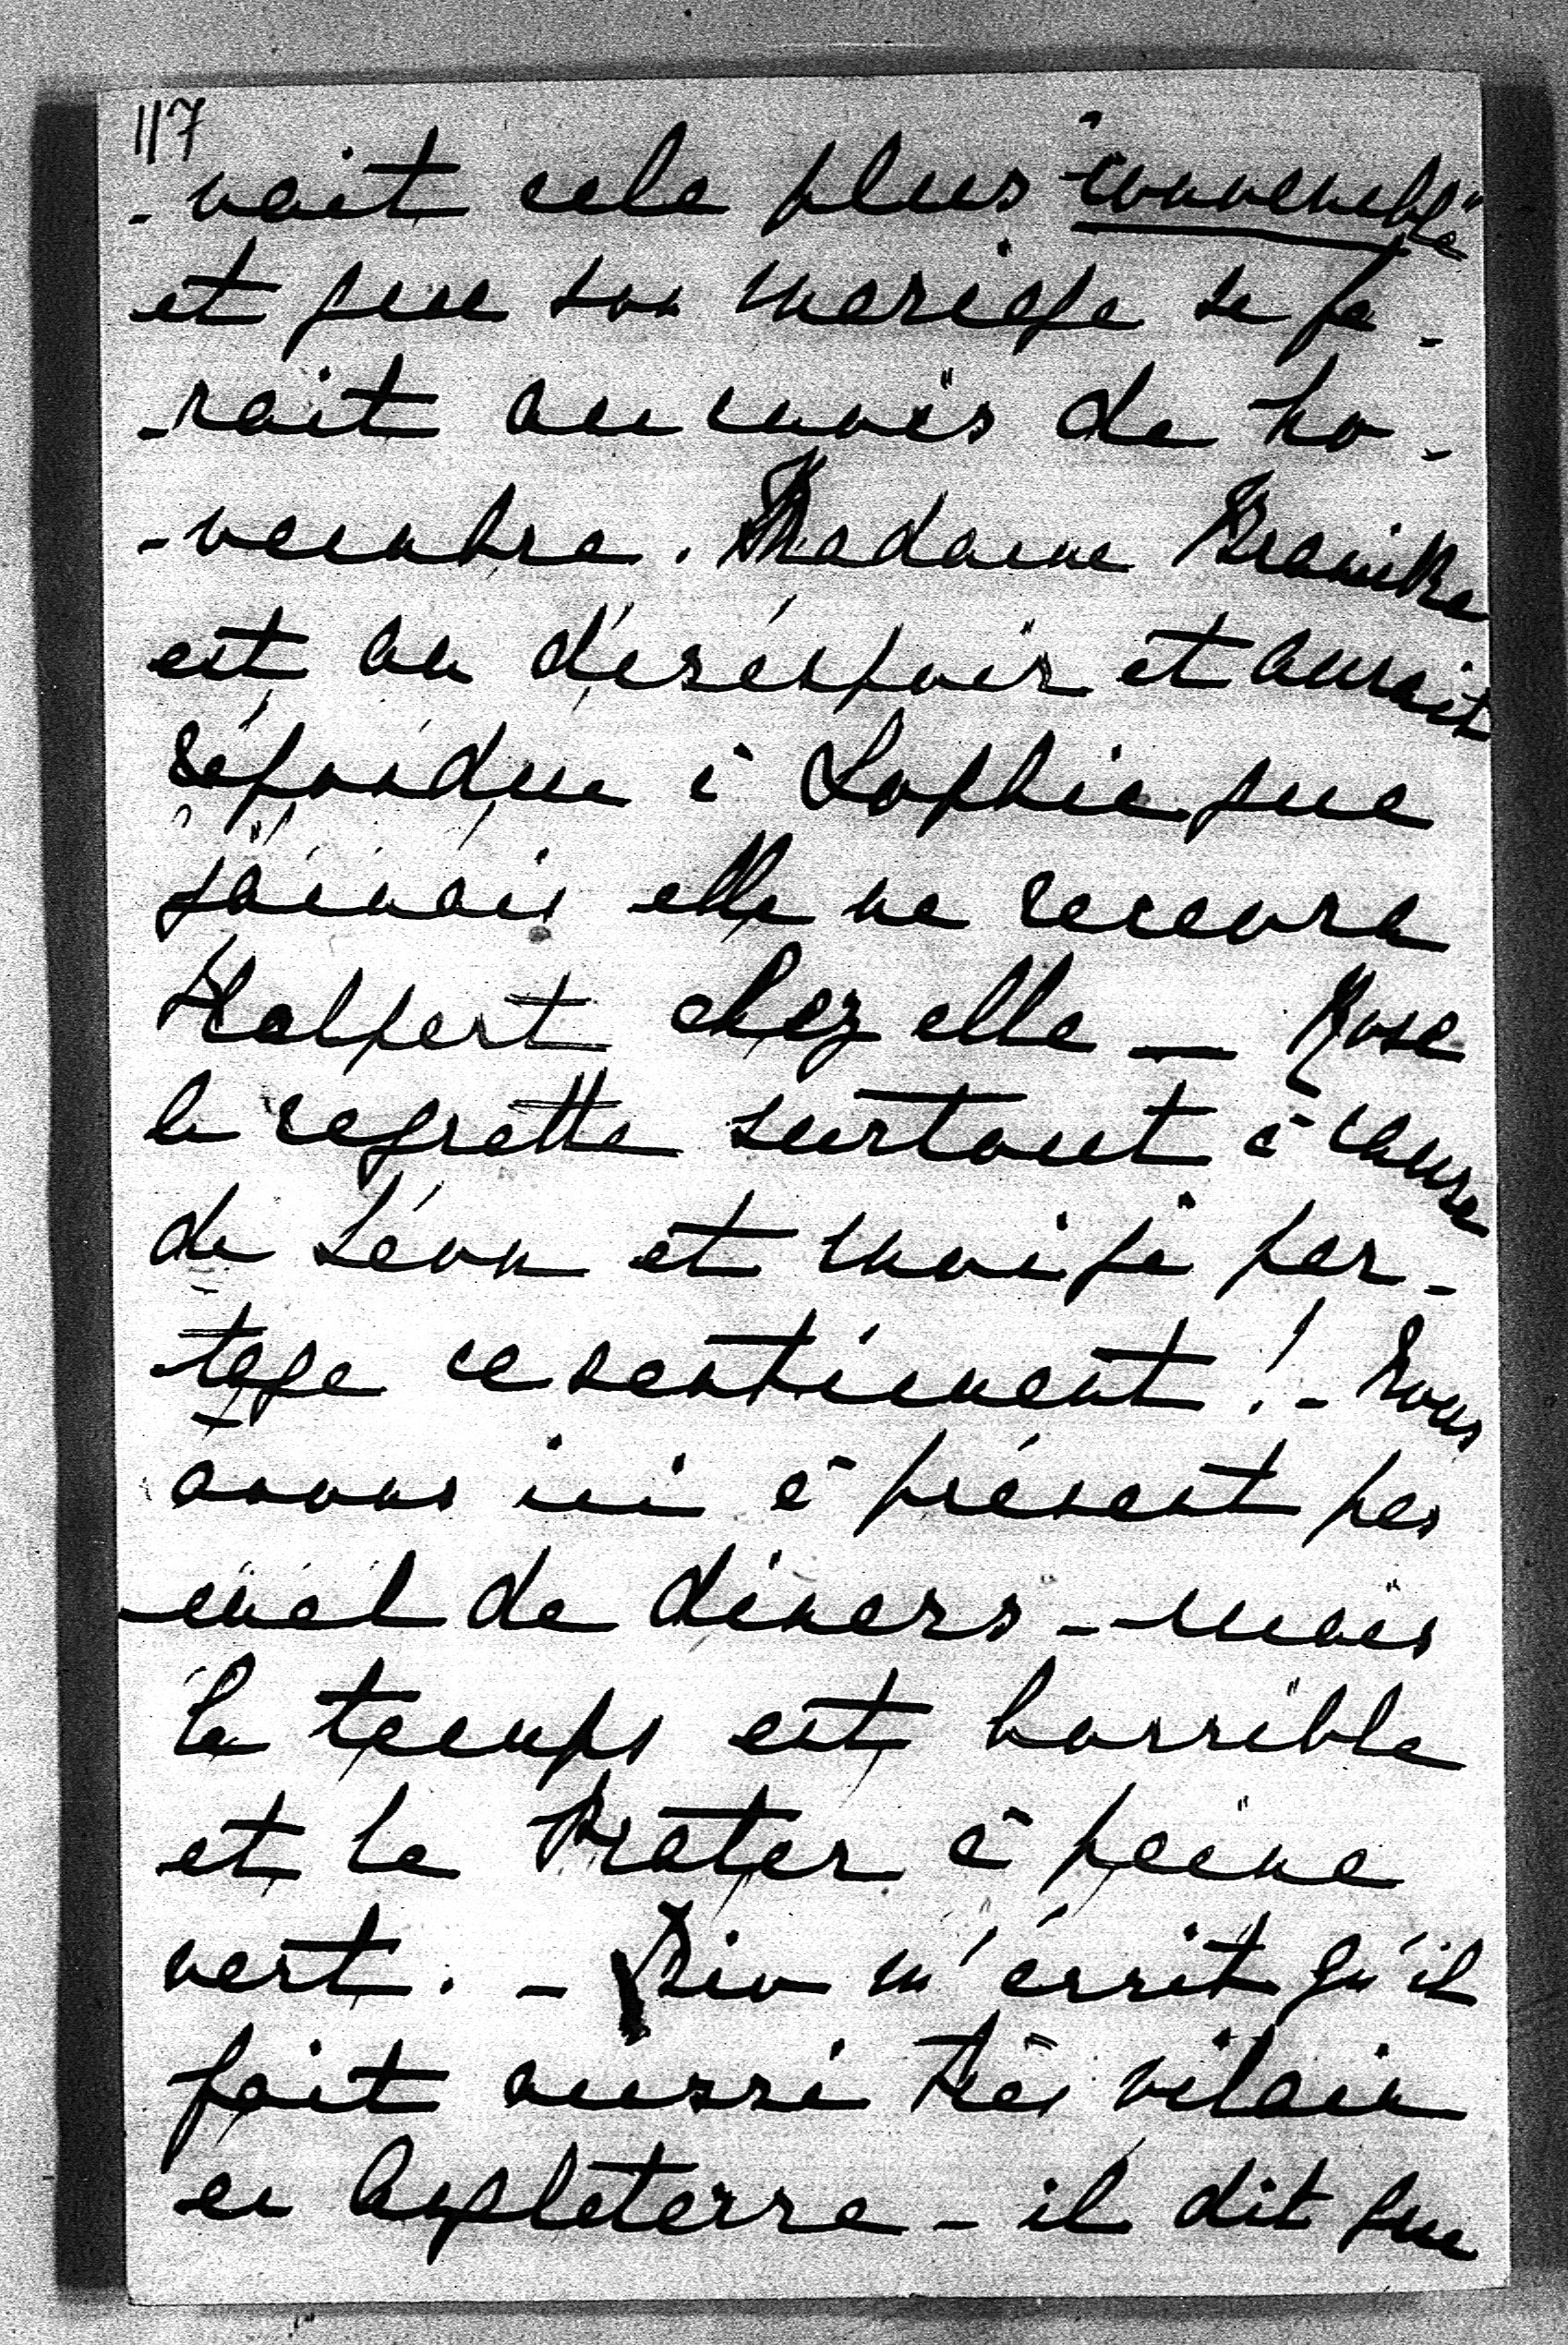 117
-vait cela plus "convenable"
et que son mariage se fe-
-rait au mois de no-
-vembre. Madame
est au désespoir et aurait
répondue à Sophie que
jamais elle ne recevra
Halpert chez elle — Rose
le regrette surtout à cause
de Léon et moi je par-
-tage ce sentiment ! - Nous
avons ici à présent pas
mal de diners - mais
le temps est horrible
et le Prater à peine
vert. - m'écrit qu'il
fait aussi très vilain
en Angleterre - il dit que